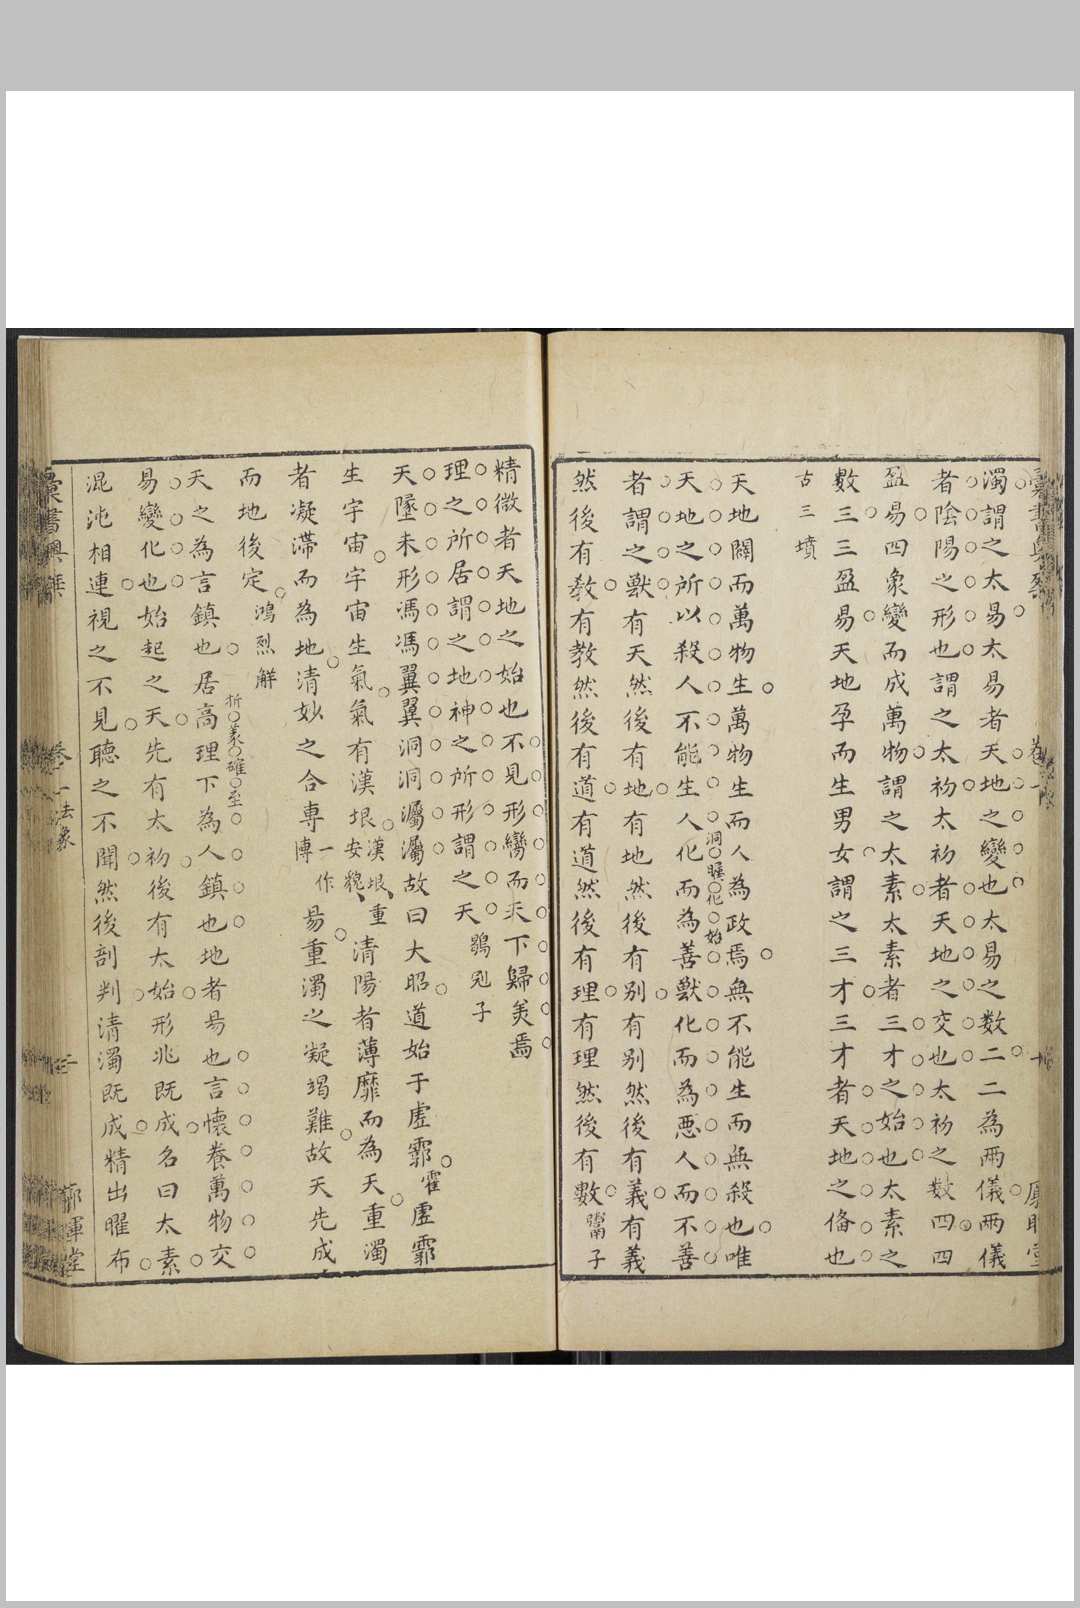 濁謂之太易太易者天地之變也太易之数二二為兩儀兩儀
者陰陽之形也謂之太初太初者天地之交也太初之数四四
盈易四象變而成萬物謂之太素太素者三才之始也太素之
數三三盈易天地孕而生男女謂之三才三才者天地之俻也
古三墳
天地闢而萬物生萬物生而人為政焉無不能生而無殺也唯
洞瞩化始
天地之所以殺人不能生人化而為善獸化而為惡人而不善
者謂之獸有天然後有地有地然後有别有别然後有義有義
然後有教有教然後有道有道然後有理有理然後有數
子
精微者天地之始也不見形臠而天下歸美焉
理之所居謂之地神之所形謂之天鶡冠子
天墜未形馮馮翼翼洞洞灟灟故曰大昭道始于虛霩霍虛霩
生宇宙宇宙生氣氣有漢垠漢垠、重安貌、清陽者薄靡而為天重濁
者凝滯而為地清妙之合專一作博易重濁之凝竭難故天先成
而地後定鴻烈解
析義確至
天之為言鎮也居高理下為人鎮也地者易也言懷養萬物交
易變化也始起之天先有太初後有太始形兆既成名曰太素
混沌相連視之不見聽之不聞然後剖判清濁既成精出曜布
卷一法象